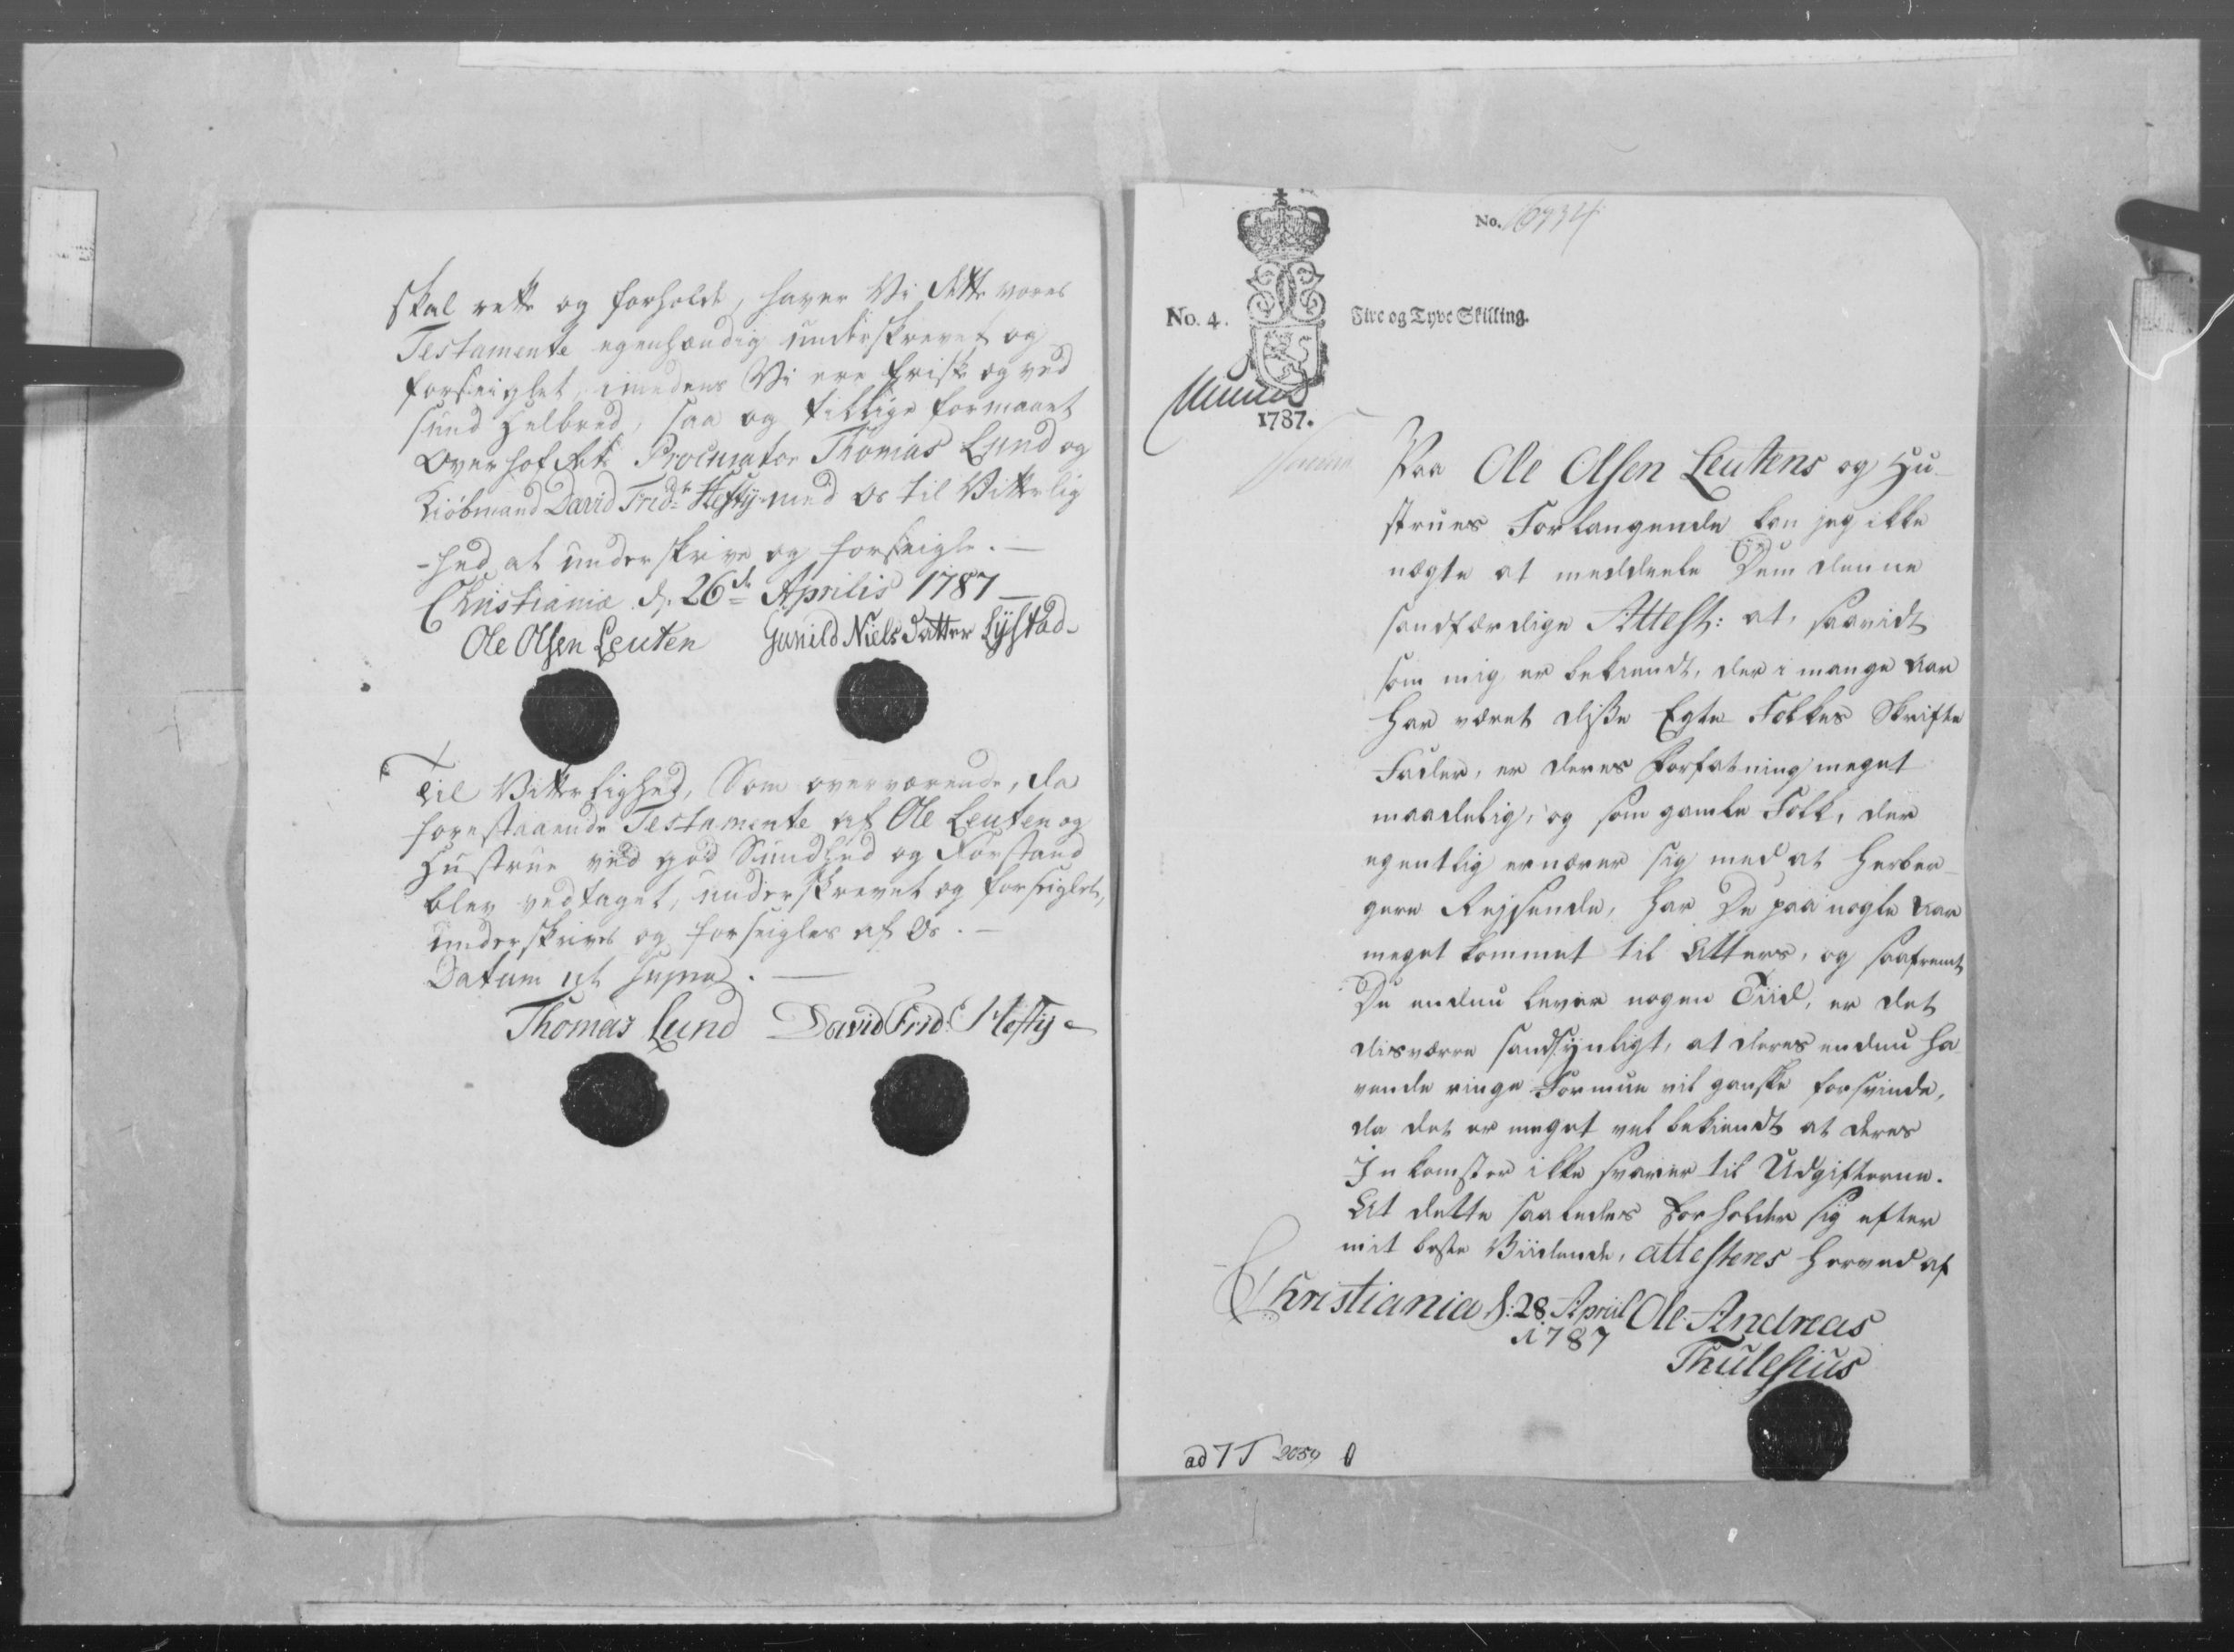 skal rette og forholde, haver Vi dette vores
Testamente egenhændig underskrevet og
forseiglet, imedens Vi ere friske og ved
sund Helbred, saa og tillige formaaet
Overhofrets Procurator Thomas Lund og
Kiöbmand David Fridr. Hefty med os til Vitterlig
-hed at underskrive og forseigle. —
Christiania d. 26de Aprilis 1787 —
Ole Olsen Leuten Gunild Niels Datter Lÿstad
Til Vitterlighed, Som overværende, da
forestaaende Testamente af Ole Leuten og
Hustrue ved god Sundhed og Forstand
blev vedtaget, underskrevet og forseiglet,
underskrives og forseigles af Os. —
Datum ut supra. —
Thomas Lund David Frid. Hefty
No. 16734
No. 4. Fire og Tyve Skilling.
1787.
Paa Ole Olsen Leutens og Hu-
strues Forlangende kan jeg ikke
nægte at meddeele Dem denne
sandfærdige Attest: at, saavidt
som mig er bekiendt, der i mange Aar
har været disse Egte Folkes Skrifte
Fader, er deres Forfatning meget
maadelig, og som gamle Folk, der
egentlig ernærer sig med at Herber-
gere Rejsende, har De paa nogle Aar
meget kommet til Atters, og saafremt
De endnu lever nogen Tiid, er det
disværre sandsÿnligt, at deres endnu ha-
vende ringe Formue vil ganske forsvinde,
da det er meget vel bekiendt at deres
Inkomster ikke svarer til Udgifterne.
At dette saaledes forholder sig efter
mit beste Viidende, attesteres herved af
Christiania d: 28. April Ole Andreas
1787
Thulesius
ad 7 T 2059